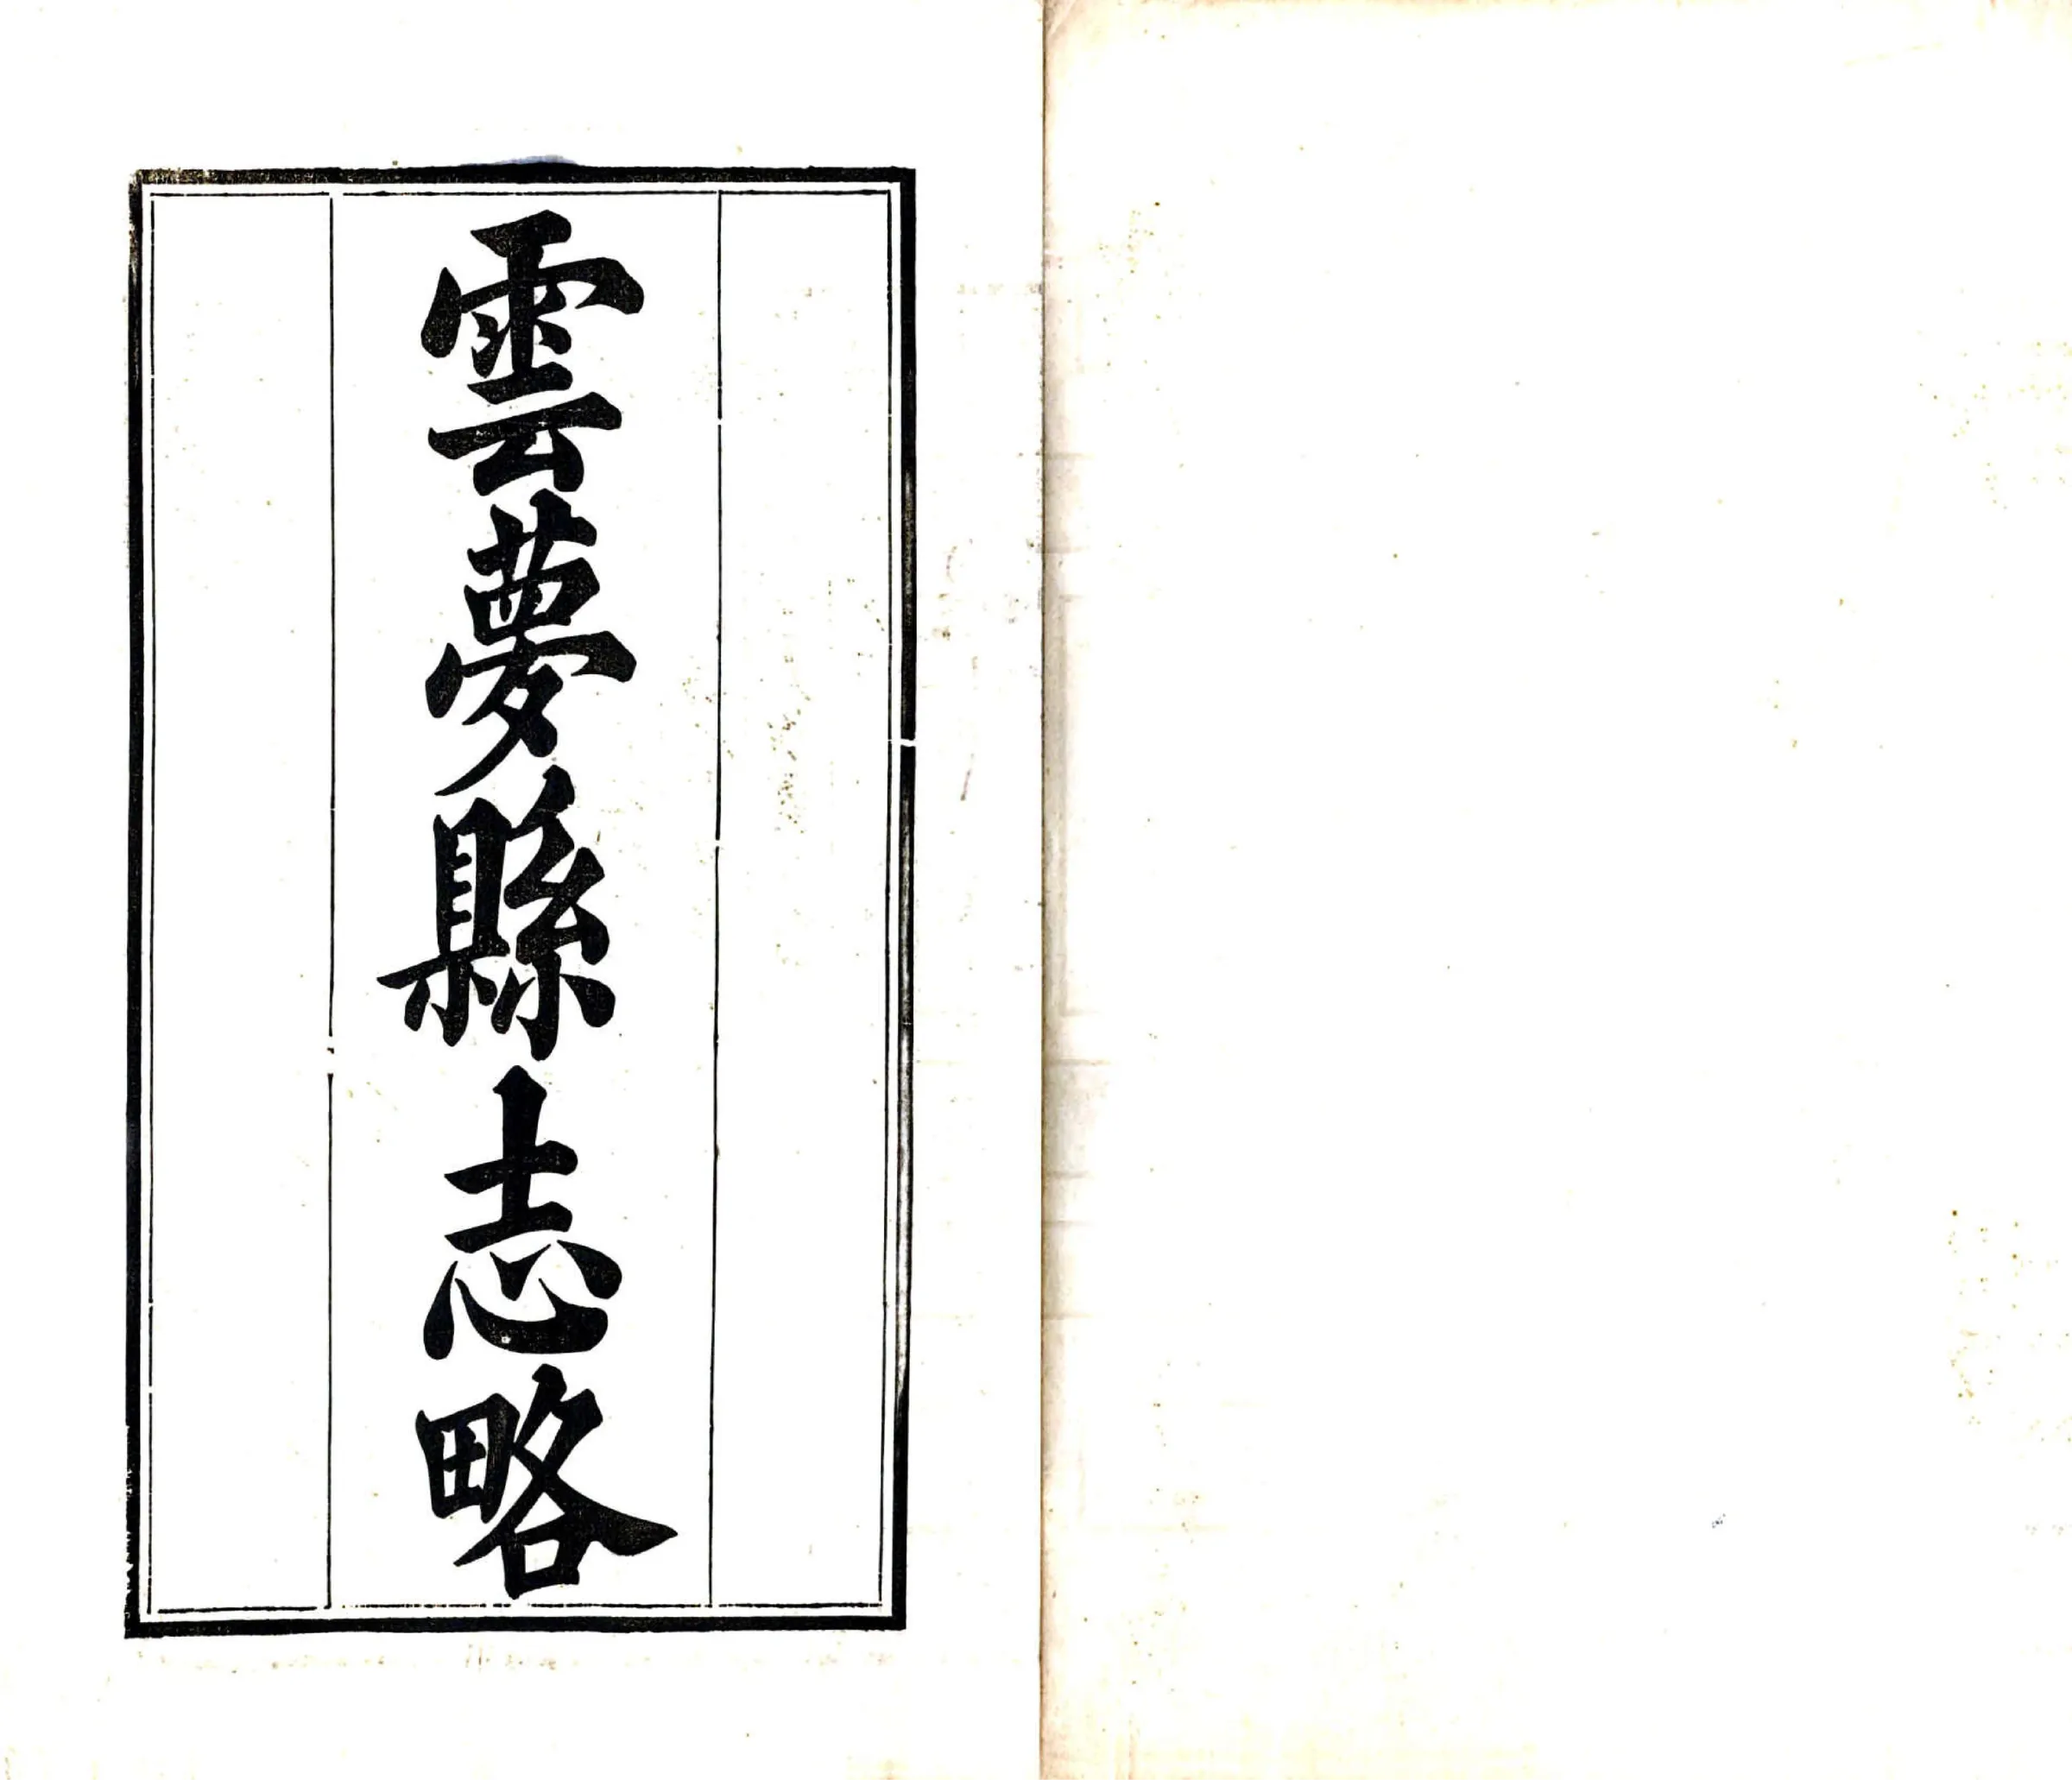 雲夢縣志略